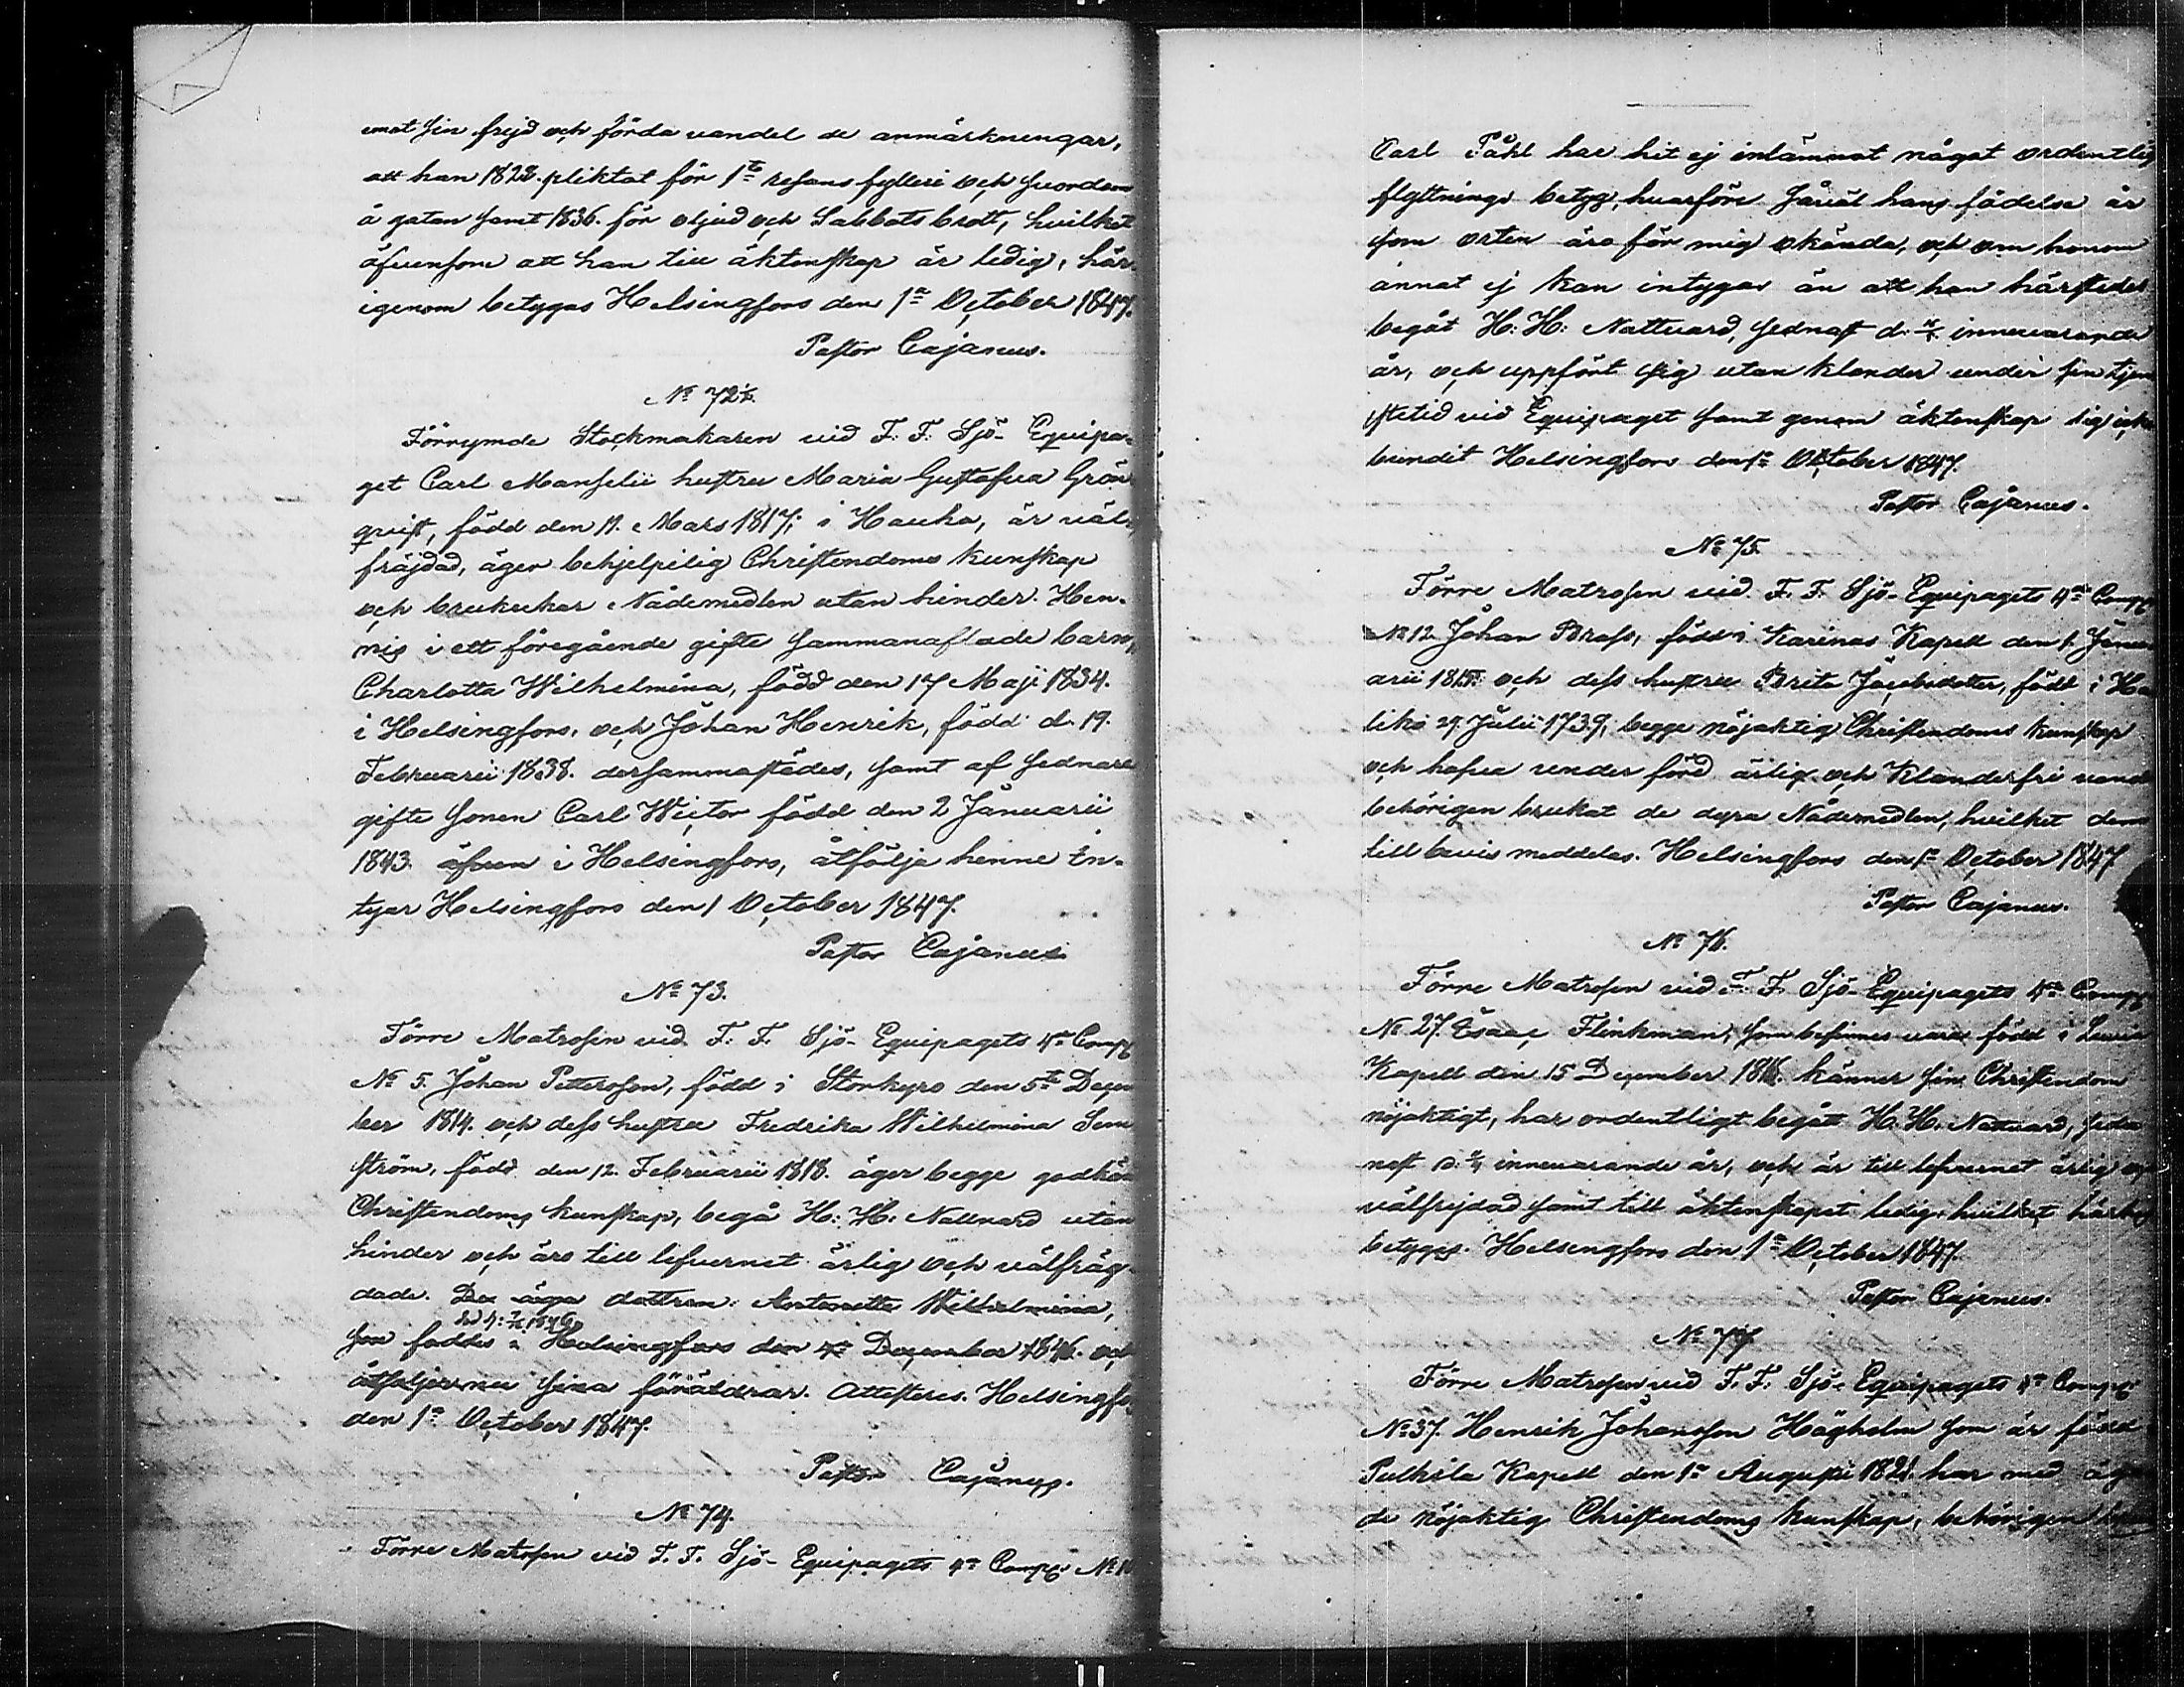 emot sin frejd och förda vandel de anmärkningar,
att han 1828. pliktat för 1ta resans fylleri och svordom
å gatan samt 1836. för oljud och Sabbats brott, hvilket
äfvensom att han till äktenskap är ledig, här-
igenom betygas Helsingfors den 1a October 1847.
Pastor Cajanus.
No 72½.
Förrymde Stockmakaren vid F: F: Sjö- Equipa-
get Carl Manselii hustru Maria Gustafva Grön-
qvist, född den 11. Mars 1817; i Hauho, är väl-
fräjdad, äger behjelpelig Christendoms kunskap
och brukar Nådemedlen utan hinder. Hen-
nes i ett föregående gifte sammanaflade barn,
Charlotta Wilhelmina, född den 17 Maji 1834.
i Helsingfors, och Johan Henrik, född d. 19.
Februarii 1838. dersammastädes, samt af sednare
gifte sonen Carl Victor född den 2 Januarii
1843. äfven i Helsingfors, åtfölja henne In-
tygar Helsingfors den 1 October 1847.
Pastor Cajanus
No 73.
Förre Matrosen vid F. F. Sjö- Equipagets 4a Comp
No 5. Johan Pettersson, född i Storkyro den 5te Decem
ber 1814. och dess hustru Fredrika Wilhelmina Sem
ström, född den 12. Februarii 1818. äger begge godkän
Christendoms kunskap, begå H: H: Nattvard utan
hinder och äro till lefvernet ärlig och välfräg-
dade. De äga dottren Antonette Wilhelmina,
som föddes i Helsingfors den December 1846. och
åtföljer nu sina föräldrar. Attesteras. Helsingfo
den 1a October 1847.
Pastor Cajanus.
No 74.
Förre Matrosen vid F. F. Sjö- Equipagets 4a Comp: No
Carl Påhl har hit ej inlämnat något ordentlig
flyttnings betyg, hvarföre såväl hans födelse år
som orten äro för mig okända, och om honom
annat ej kan intygas än att han härstedes
begåt H: H: Nattvard, sednast d: innevarande
år, och uppfört sig utan klander under sin tjen
stetid vid Equipaget samt genom äktenskap sig icke
bundit Helsingfors den 1a October 1847.
Pastor Cajanus.
No 75.
Förre Matrosen vid F. F. Sjö- Equipagets 4a Comp
No 12 Johan Brass, född i Karinas Kapell den 1. Janu
arii och dess hustru Brita Jacobsdotter, född i Ha
liko 29 Julii begge nöjaktig Christendoms kunskap
och hafva under förd ärlig och klanderfri vandel
behörigen brukat de dyra Nådemedlen, hvilket dem
till bevis meddelas. Helsingfors den 1a October 1847
Pastor Cajanus.
No 76.
Förre Matrosen vid F. F. Sjö- Equipagets 4a Comp
No 27. Isaac Flinkman, som befinnes vara född i Lavia
Kapell den 15 December känner sin Christendom
nöjaktigt, har ordentligt begått H. H. Nattvard, sed
nast d. innevarande år, och är till lefvernet ärlig och
välfrejdad samt till äktenskapet ledig, hvilket härhos
betygas. Helsingfors den 1a October 1847.
Pastor Cajanus.
No 77.
Förre Matrosen vid F. F. Sjö- Equipagets 4a Comp:
No 37. Henrik Johansson Högholm som är född
Pulkila Kapell den 1a Augusti 1821. har med äg
de nöjaktig Christendoms kunskap, behörigen